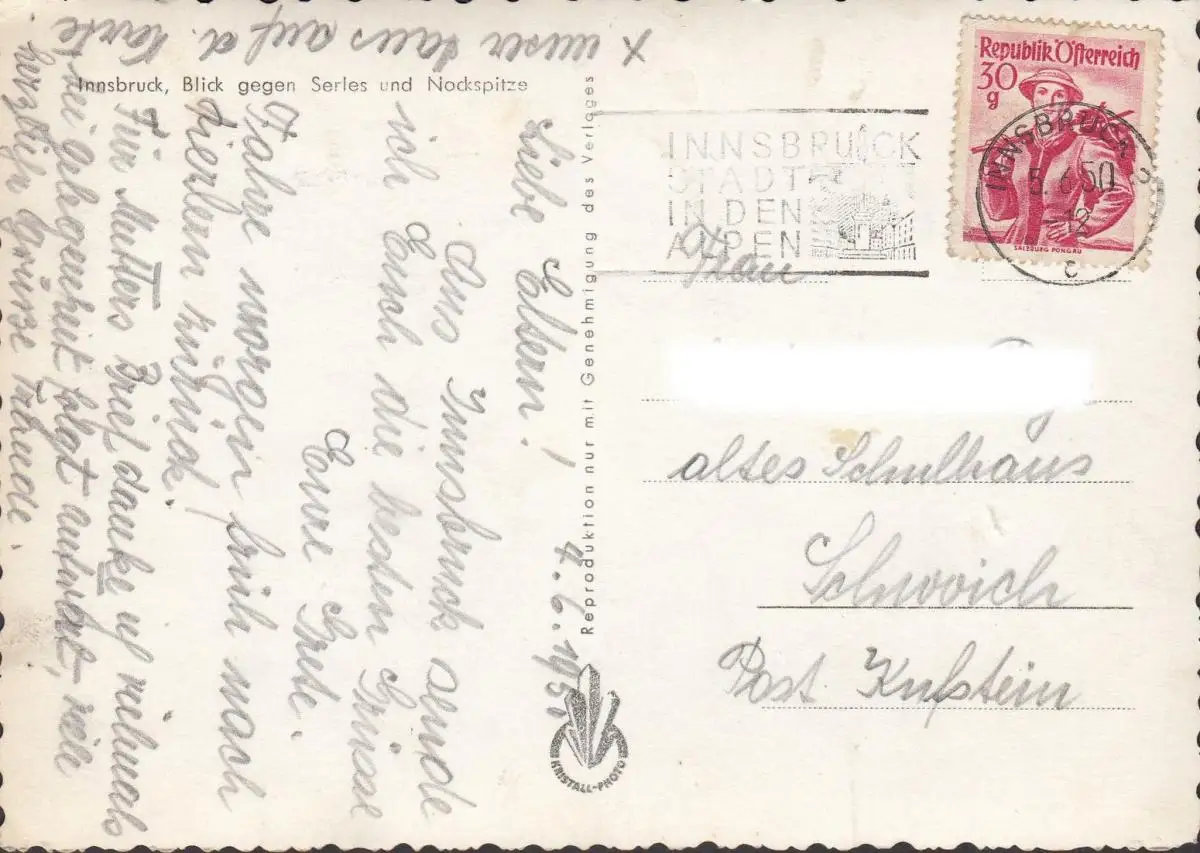 x unser Haus auf d. Karte
Innsbruck, Blick gegen Serles und Nockspitze
4. 6. 1950
Liebe Eltern!
Aus Innsbruck sende
ich Euch die besten Grüsse
Eure Grete.
Fahre morgen früh nach
Vierzen zurück.
Für Mutters Brief, danke ich vielmals
bei Gelegenheit folgt Antwort, viele
herzlich Grüsse Trude.
Reproduktion nur mit Genehmigung des Verlages
KRISTALL-PHOTO
INNSBRUCK
STADT
IN DEN
ALPEN
Republik Österreich
30
g
SALZBURG PONGAU
INNSBRUCK 2
5. 6. 50
-12
c
Frau
altes Schulhaus
Schwoich
Post Kufstein